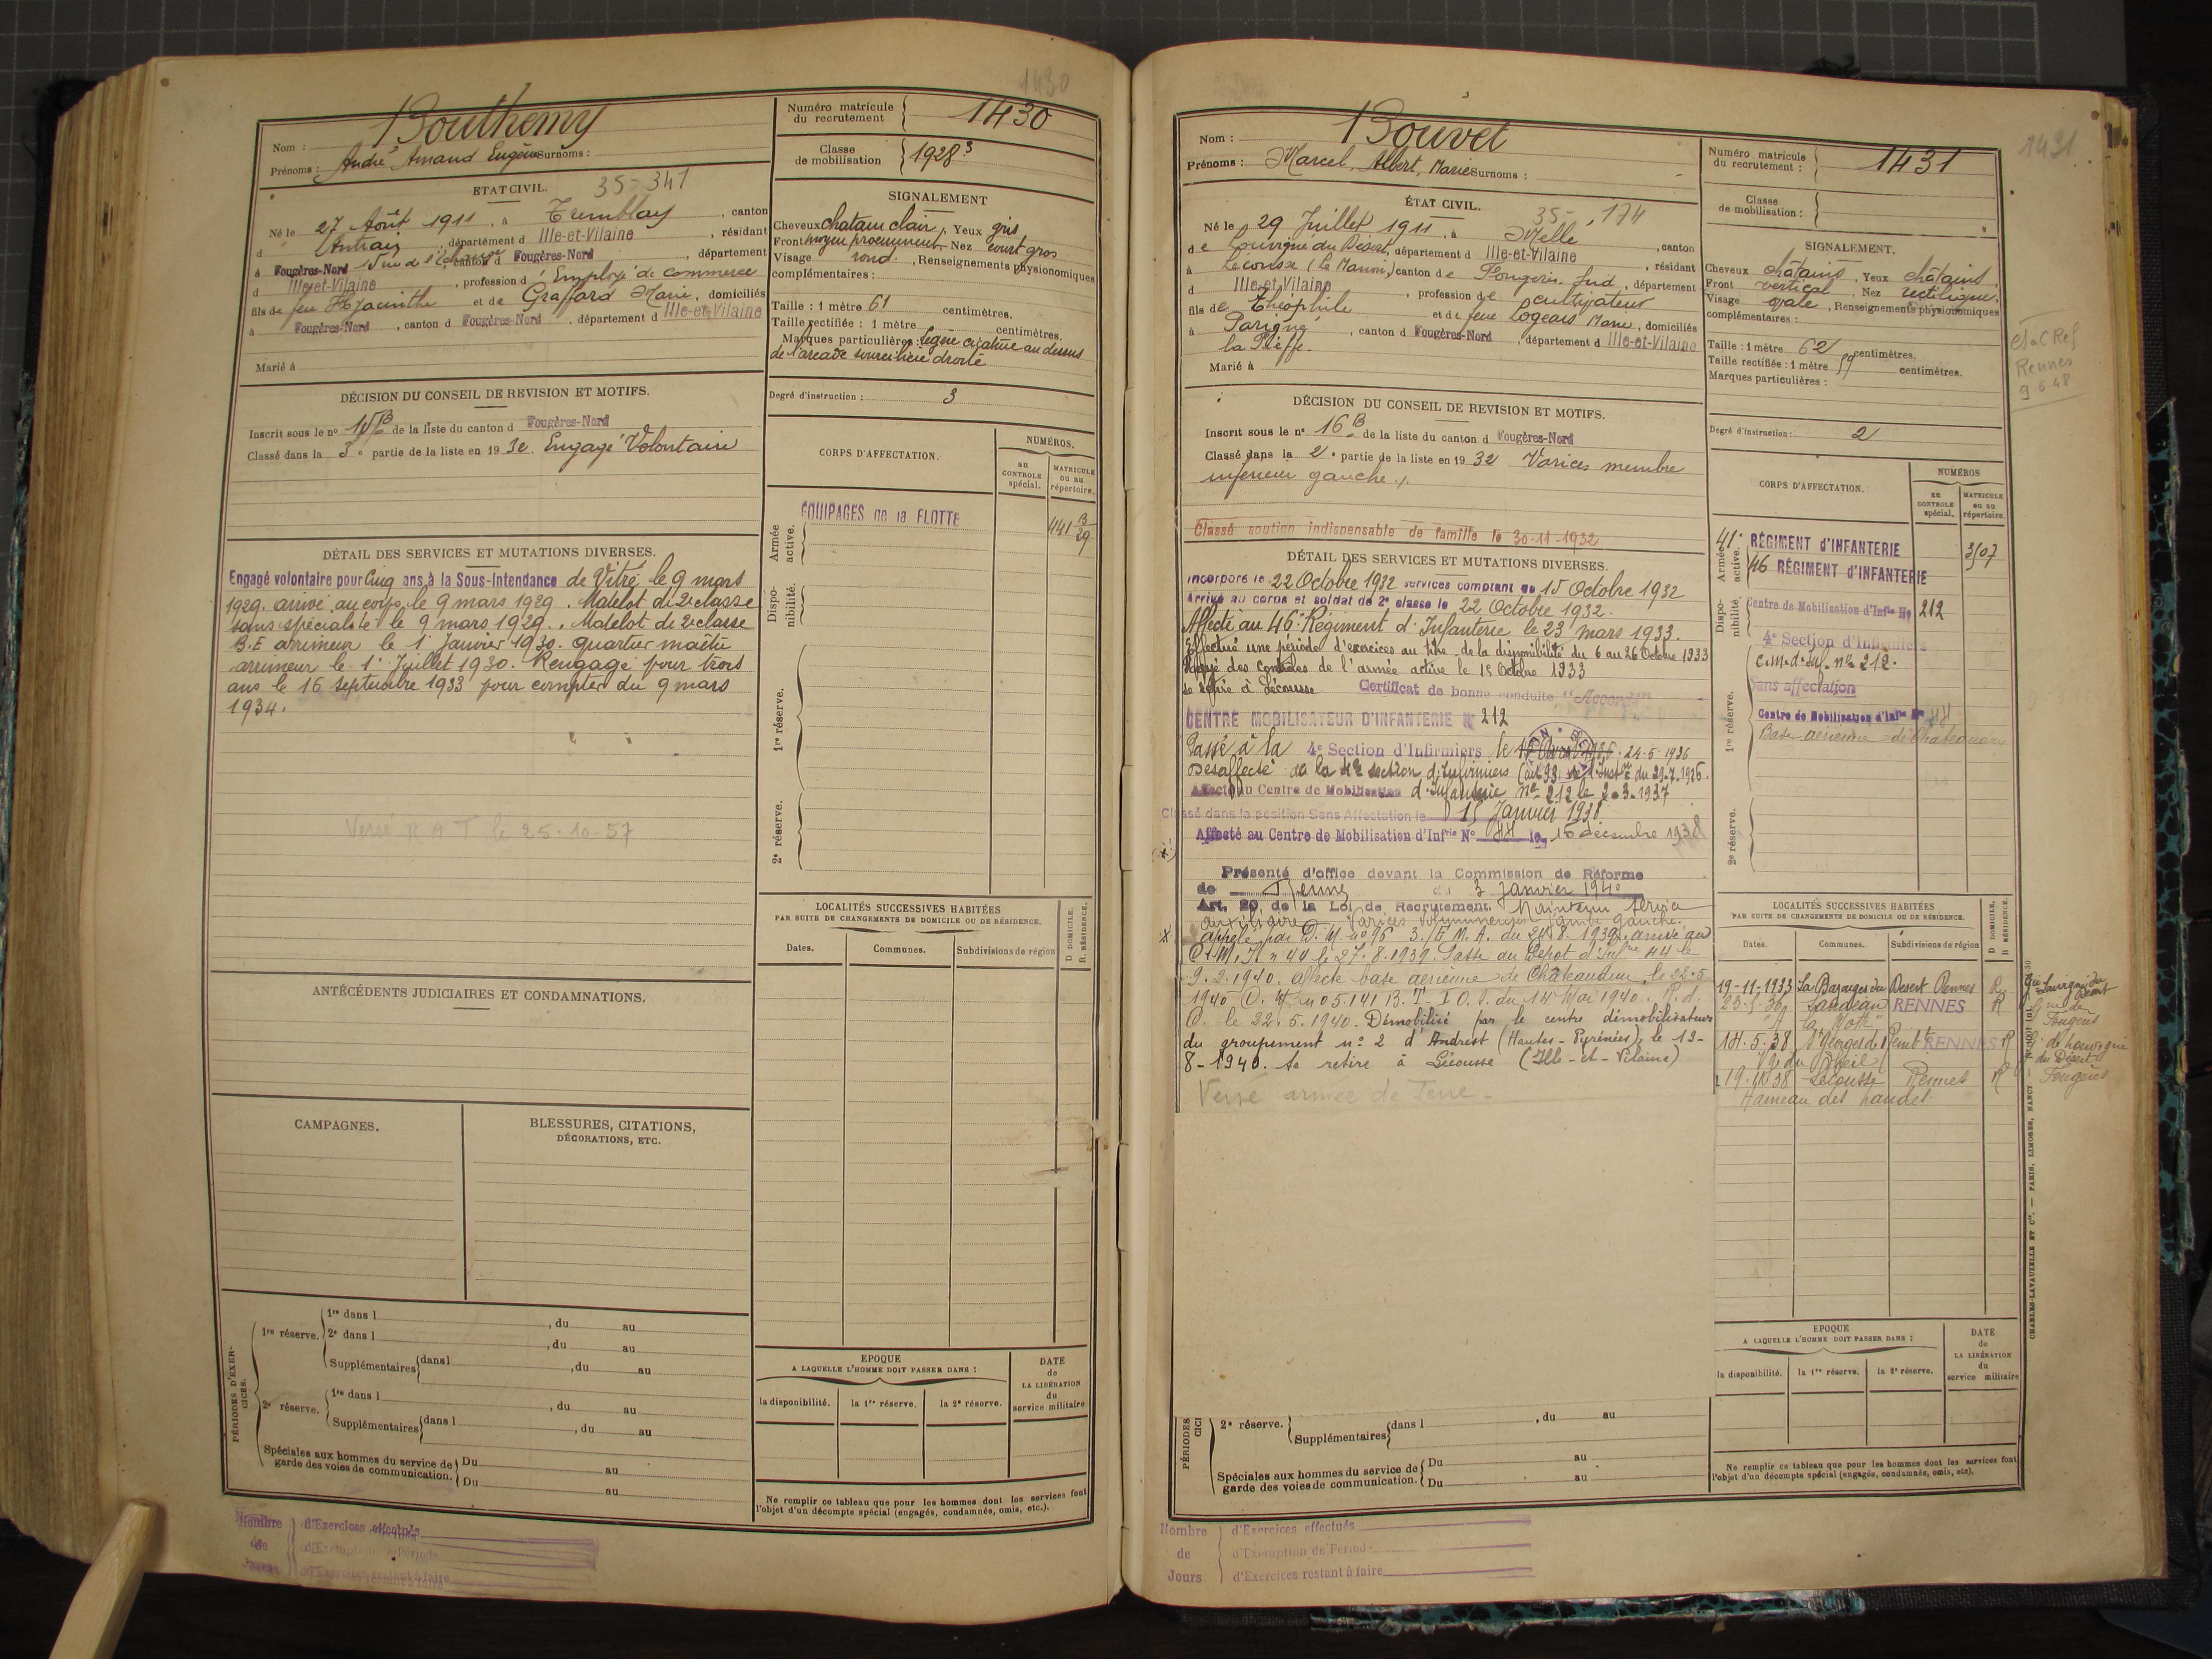 1430
Nom : Bouthemy
Prénoms : André Amand Eugène Surnoms :
Numéro matricule du recrutement 1430
Classe de mobilisation 1928 3
ETAT CIVIL. 35-341
Né le 27 Août 1911, à Tremblay, canton
d Antrain, département d Ille-et-Vilaine, résidant
à Fougères-Nord rue de canton d Fougères-Nord, département
d Ille-et-Vilaine, profession d'Employé de commerce
fils de feu Hyacinthe et de Graffard Marie, domiciliés
à Fougères-Nord, canton d Fougères-Nord, département d Ille-et-Vilaine
Marié à
SIGNALEMENT
Cheveux chatain clair, Yeux gris
Front moyen proeminent Nez court gros
Visage rond, Renseignements physionomiques
complémentaires :
Taille : 1 mètre 61 centimètres.
Taille rectifiée : 1 mètre centimètres.
Marques particulières : légère cicatrice au dessus
de l'arcade sourcilière droite
Degré d'instruction : 3
DÉCISION DU CONSEIL DE REVISION ET MOTIFS.
Inscrit sous le n° 15 B de la liste du canton d Fougères-Nord
Classé dans la 3e partie de la liste en 19 32. Engagé Volontaire
CORPS D'AFFECTATION.
NUMÉROS.
AU CONTROLE spécial.
MATRICULE ou au répertoire.
Armée active.
EQUIPAGES de la FLOTTE
441 B/29
Dispo-nibilité.
1re réserve.
2e réserve.
DÉTAIL DES SERVICES ET MUTATIONS DIVERSES.
Engagé volontaire pour Cinq ans à la Sous-Intendance de Vitré le 9 mars
1929. arrivé au corps le 9 mars 1929. Matelot de 2e classe
sans spécialité le 9 mars 1929. Matelot de 2e classe
B.E arrimeur le 1er Janvier 1930. quartier maître
arrimeur le 1er Juillet 1930. Rengagé pour trois
ans le 16 septembre 1933 pour compter du 9 mars
1934.
Versé R A T le 25-10-57
ANTÉCÉDENTS JUDICIAIRES ET CONDAMNATIONS.
LOCALITÉS SUCCESSIVES HABITÉES
PAR SUITE DE CHANGEMENTS DE DOMICILE OU DE RÉSIDENCE.
Dates. Communes. Subdivisions de région
D DOMICILE.
R. RÉSIDENCE.
CAMPAGNES.
BLESSURES, CITATIONS,
DÉCORATIONS, ETC.
PÉRIODES D'EXERCICES.
1re réserve.
1re dans l , du au
2e dans l , du au
Supplémentaires dans l , du au
2e réserve.
1re dans l , du au
Supplémentaires dans l , du au
Spéciales aux hommes du service de garde des voies de communication.
Du au
Du au
EPOQUE
A LAQUELLE L'HOMME DOIT PASSER DANS :
la disponibilité. la 1re réserve. la 2e réserve.
DATE de LA LIBÉRATION du service militaire
Ne remplir ce tableau que pour les hommes dont les services font
l'objet d'un décompte spécial (engagés, condamnés, omis, etc.).
Nombre de Jours
d'Exercices effectués
d'Exemption de Période
d'Exercices restant à faire
1431
Nom : Bouvet
Prénoms : Marcel, Albert, Marie Surnoms :
Numéro matricule du recrutement : 1431
Classe de mobilisation :
ÉTAT CIVIL. 35-174
Né le 29 Juillet 1911, à Mellé, canton
de Louvigné du Désert, département d Ille-et-Vilaine, résidant
à Lécousse (Le Manoir) canton de Fougères Sud, département
d Ille-et-Vilaine, profession de cultivateur
fils de Théophile et de feue Logeais Marie, domiciliés
à Parigné, canton d Fougères-Nord, département d Ille-et-Vilaine
la Pléffe.
Marié à
SIGNALEMENT.
Cheveux châtains, Yeux châtains,
Front vertical, Nez rectiligne.
Visage ovale, Renseignements physionomiques
complémentaires :
Taille : 1 mètre 62 centimètres.
Taille rectifiée : 1 mètre 59 centimètres.
Marques particulières :
Degré d'instruction : 2
Rennes
9.5.48
DÉCISION DU CONSEIL DE REVISION ET MOTIFS.
Inscrit sous le n° 16 B de la liste du canton d Fougères-Nord
Classé dans la 2e partie de la liste en 19 32 Varices membre
inférieur gauche.
Classé soutien indispensable de famille le 30-11-1932
CORPS D'AFFECTATION.
NUMÉROS
AU CONTROLE spécial.
MATRICULE ou au répertoire.
Armée active.
41e RÉGIMENT d'INFANTERIE 3507
46 RÉGIMENT d'INFANTERIE
Dispo-nibilité.
Centre de Mobilisation d'Infie No 212
4e Section d'Infirmiers
1re réserve.
C.m.d'Inf. no 212.
Sans affectation
Centre de Mobilisation d'Infie No 44
Base aérienne de Chateaudun
2e réserve.
DÉTAIL DES SERVICES ET MUTATIONS DIVERSES.
Incorporé le 22 Octobre 1932 services comptant du 15 Octobre 1932
Arrivé au corps et soldat de 2e classe le 22 Octobre 1932.
Affecté au 46e Régiment d'Infanterie le 23 mars 1933.
Effectué une période d'exercices au titre de la disponibilité du 6 au 26 Octobre 1933
Rayé des contrôles de l'armée active le 15 Octobre 1933
se retire à Lécousse Certificat de bonne conduite "Accordé"
CENTRE MOBILISATEUR D'INFANTERIE N° 212
Passé à la 4e Section d'Infirmiers le 24-5-1936
Désaffecté de la 4e section d'Infirmiers (art 93 de l'Instion du 29.7.1926.
Affecté au Centre de Mobilisation d'Infanterie no 212 le 2.3.1937
Classé dans la position Sans Affectation le 15 Janvier 1938.
Affecté au Centre de Mobilisation d'Infrie N° 44 le 16 décembre 1938
Présenté d'office devant la Commission de Réforme
de Rennes du 3 janvier 1940
Art. 20 de la Loi de Recrutement. Maintenu service
auxiliaire Varices volumineuses jambe gauche.
appelé par D.M. no 96 3./E.M.A. du 24.8.1939. arrivé au
C.M.I. n° 44 le 27.8.1939. Passé au Dépôt d'Infrie 44 le
9.2.1940. affecté base aérienne de Châteaudun le 22.5
1940 D.M. no 5.141 B.T-I O.S. du 14 Mai 1940. R.d.
C. le 22.5.1940. Démobilisé par le centre démobilisateur
du groupement n° 2 d'Andrest (Hautes-Pyrénées), le 13-
8-1940. Se retire à Lécousse (Ille-et-Vilaine)
Versé armée de Terre
LOCALITÉS SUCCESSIVES HABITÉES
PAR SUITE DE CHANGEMENTS DE DOMICILE OU DE RÉSIDENCE.
Dates. Communes. Subdivisions de région
D DOMICILE.
R RÉSIDENCE.
19-11-1933 La Bazouges du Desert Rennes R
Landéan RENNES R
14.5.38 St Georges de Reint RENNES R
Lécousse Rennes R
Hameau des
Louvigné du Désert
Fougères
de Louvigné du Désert
Fougères
CHARLES-LAVAUZELLE ET Cie. — PARIS, LIMOGES, NANCY
EPOQUE
A LAQUELLE L'HOMME DOIT PASSER DANS :
la disponibilité. la 1re réserve. la 2e réserve.
DATE de LA LIBÉRATION du service militaire
PÉRIODES
2e réserve.
dans l , du au
Supplémentaires
Spéciales aux hommes du service de garde des voies de communication.
Du au
Du au
Ne remplir ce tableau que pour les hommes dont les services font
l'objet d'un décompte spécial (engagés, condamnés, omis, etc).
Nombre de Jours
d'Exercices effectués
d'Exemption de Période
d'Exercices restant à faire